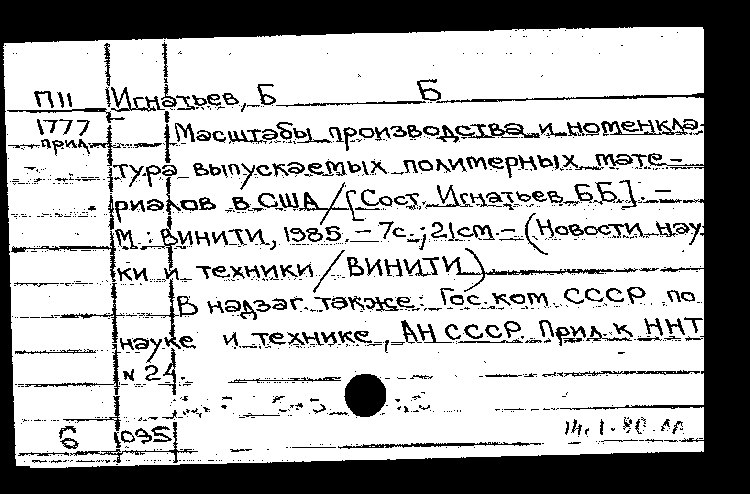 П11 Игнатьев, Б Б
1777 Масштабы производства и номенкла-
прил. тура выпускаемых полимерных мате-
риалов в США / [Сост. Игнатьев Б.Б.]. -
М.: ВИНИТИ, 1985. - 7с.; 21см. - (Новости нау-
ки и техники / ВИНИТИ)
В надзаг. также: Гос. ком. СССР по
науке и технике, АН СССР. Прил. к ННТ
N 24.
6 1095